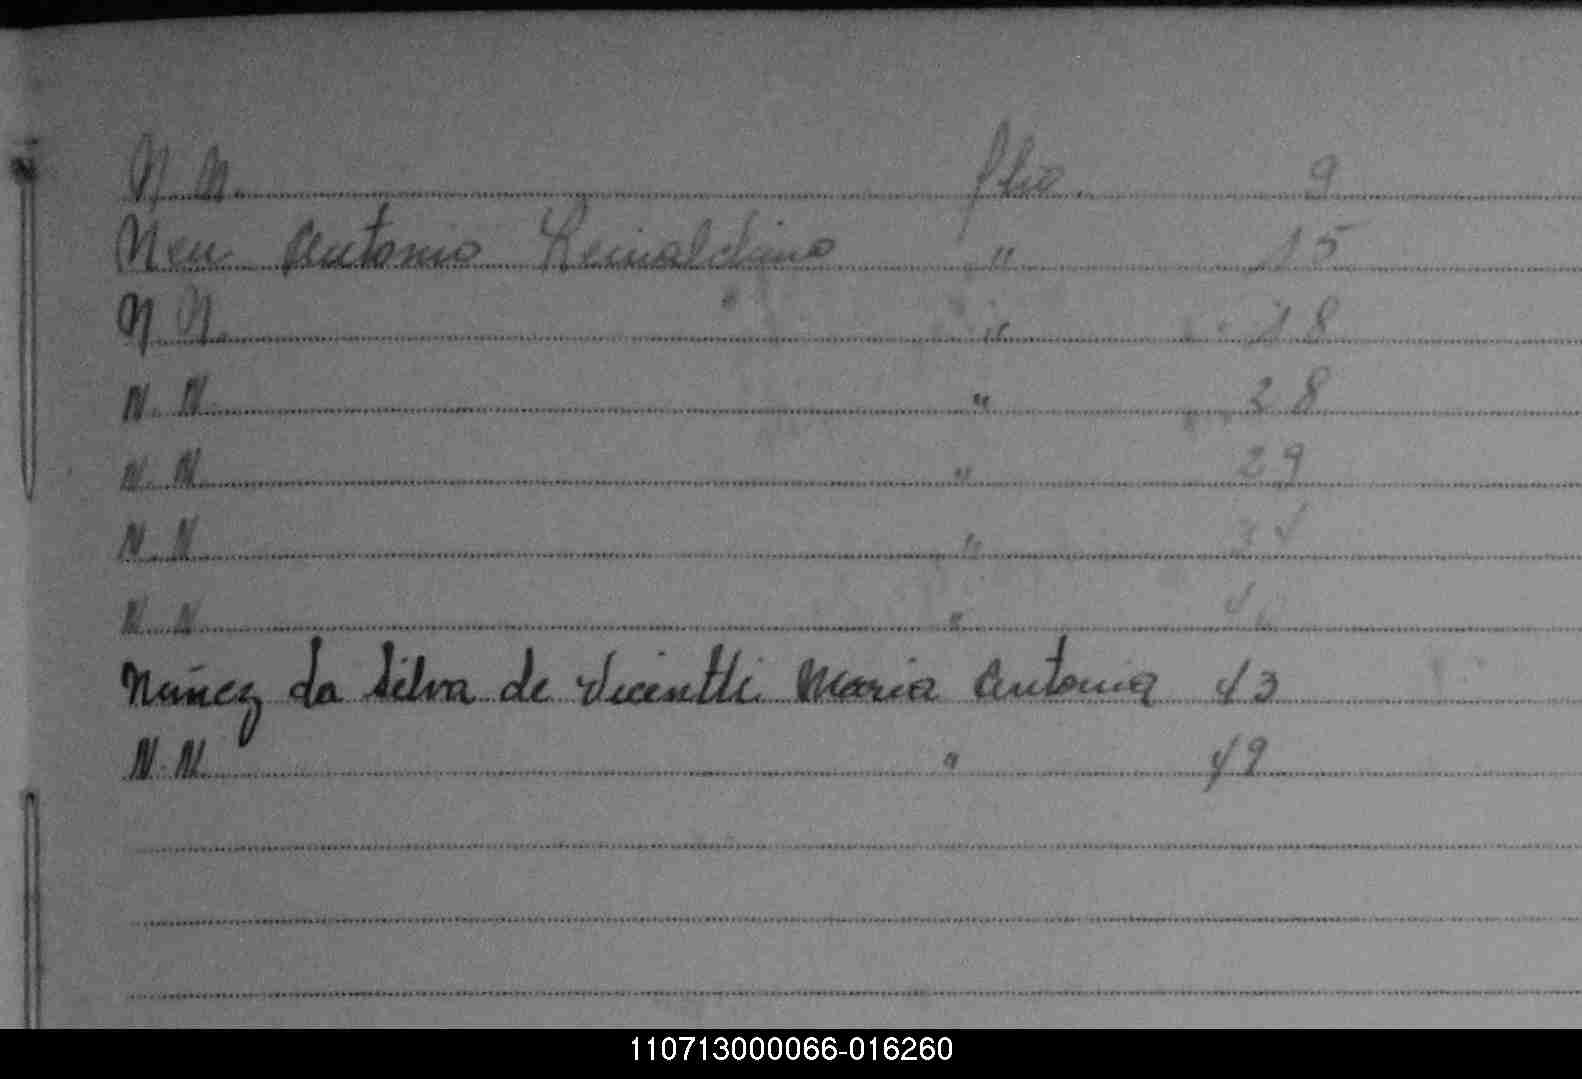 N. N. flio. 9
Neu Antonio Reinaldino " 15
N. N. " 18
N. N. " 28
N. N. " 29
N. N. " 34
N. N. " 40
Núñez da Silva de Vicentti Maria Antonia 43
N. N. " 49
110713000066-016260